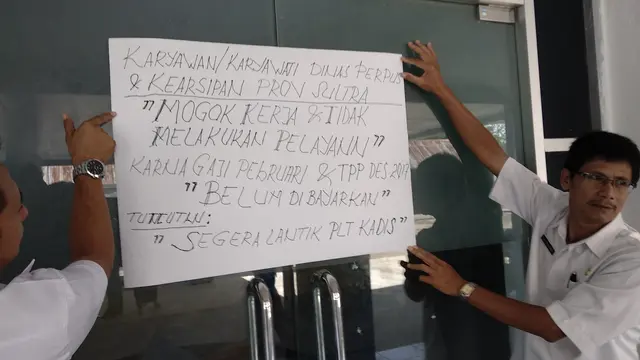 KARYAWAN/KARYAWATI DINAS PERPUS
& KEARSIPAN PROV SULTRA
"MOGOK KERJA & TIDAK
MELAKUKAN PELAYANN"
KARNA GAJI PEBRUARI & TPP DES 2019
"BELUM DI BAYARKAN"
TUNTUTAN:
"SEGERA LANTIK PLT KADIS"